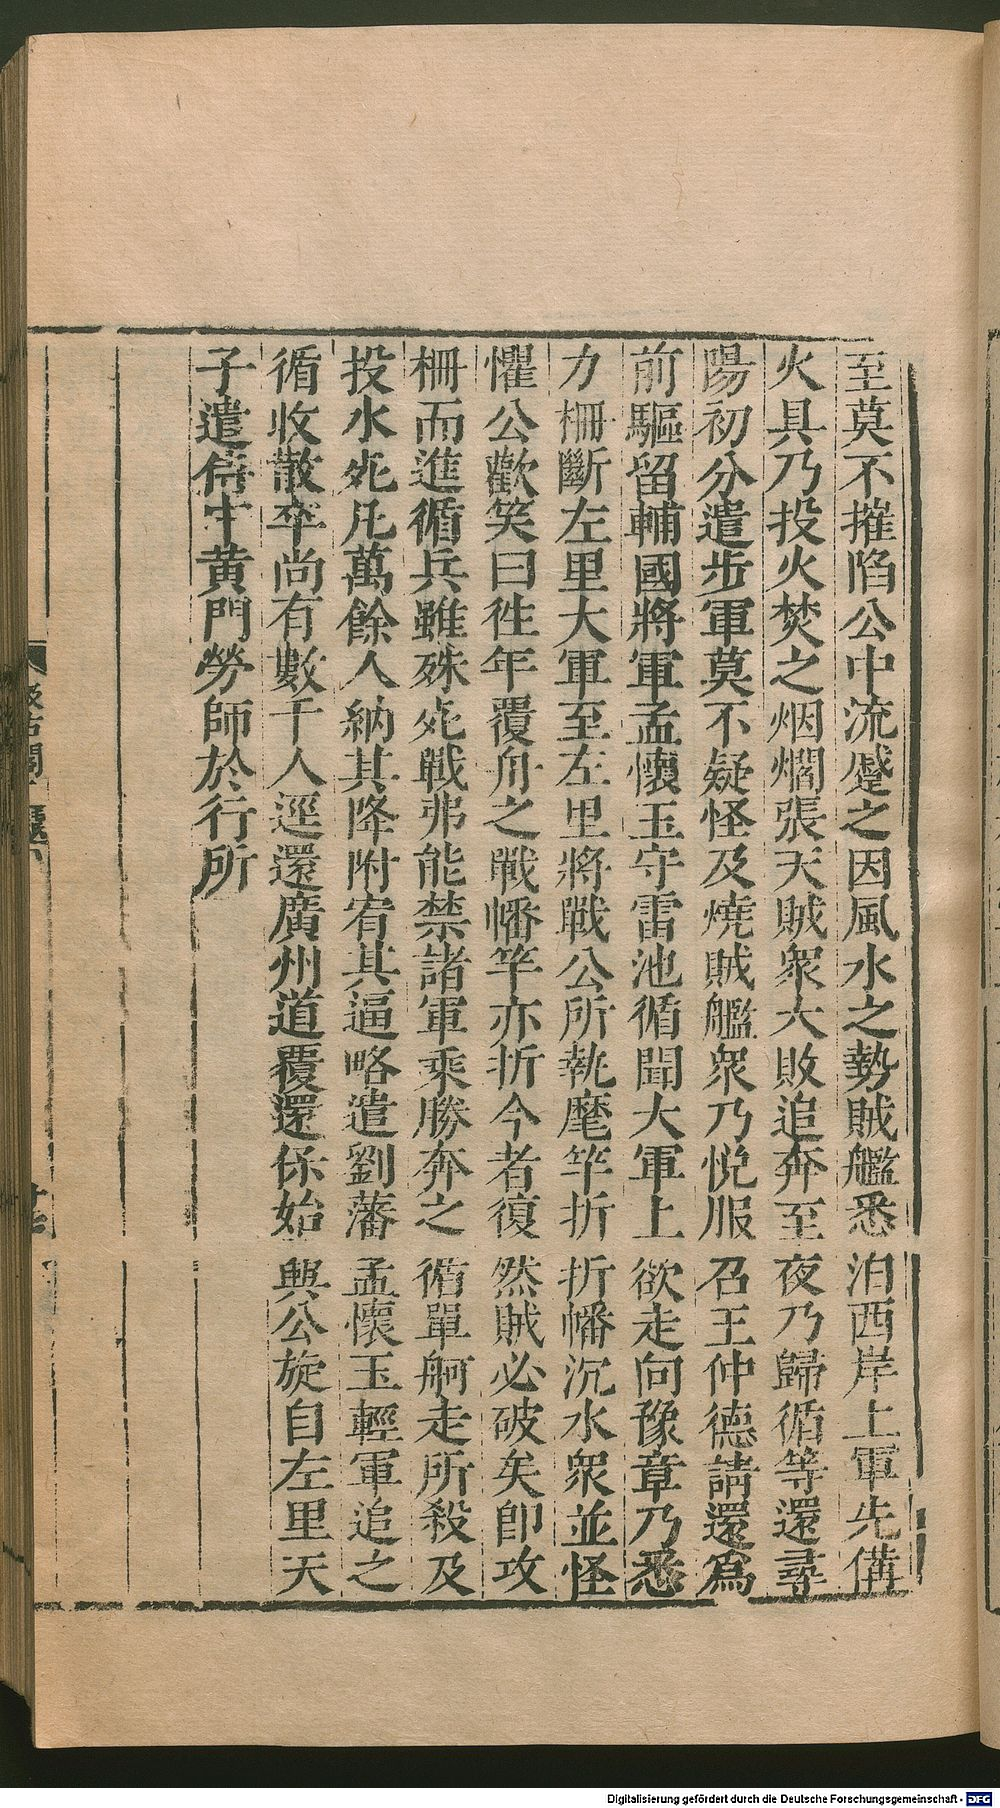 至莫不摧陷公中流蹙之因風水之勢賊艦悉泊西岸上軍先備
火具乃投火焚之烟爓張天賊衆大敗追奔至夜乃歸循等還尋
陽初分遣步軍莫不疑怪及燒賊艦衆乃悅服召王仲德請還爲
前驅留輔國將軍孟懷玉守雷池循聞大軍上欲走向豫章乃悉
力柵斷左里大軍至左里將戰公所執麾竿折折幡沉水衆並怪
懼公歡笑曰徃年覆舟之戰幡竿亦折今者復然賊必破矣卽攻
柵而進循兵雖殊死戰弗能禁諸軍乘勝奔之循單舸走所殺及
投水死凡萬餘人納其降附宥其逼略遣劉藩孟懷玉輕軍追之
循收散卒尚有數千人逕還廣州道覆還保始興公旋自左里天
子遣侍中黃門勞師於行所
汲古閣
Digitalisierung gefördert durch die Deutsche Forschungsgemeinschaft - DFG